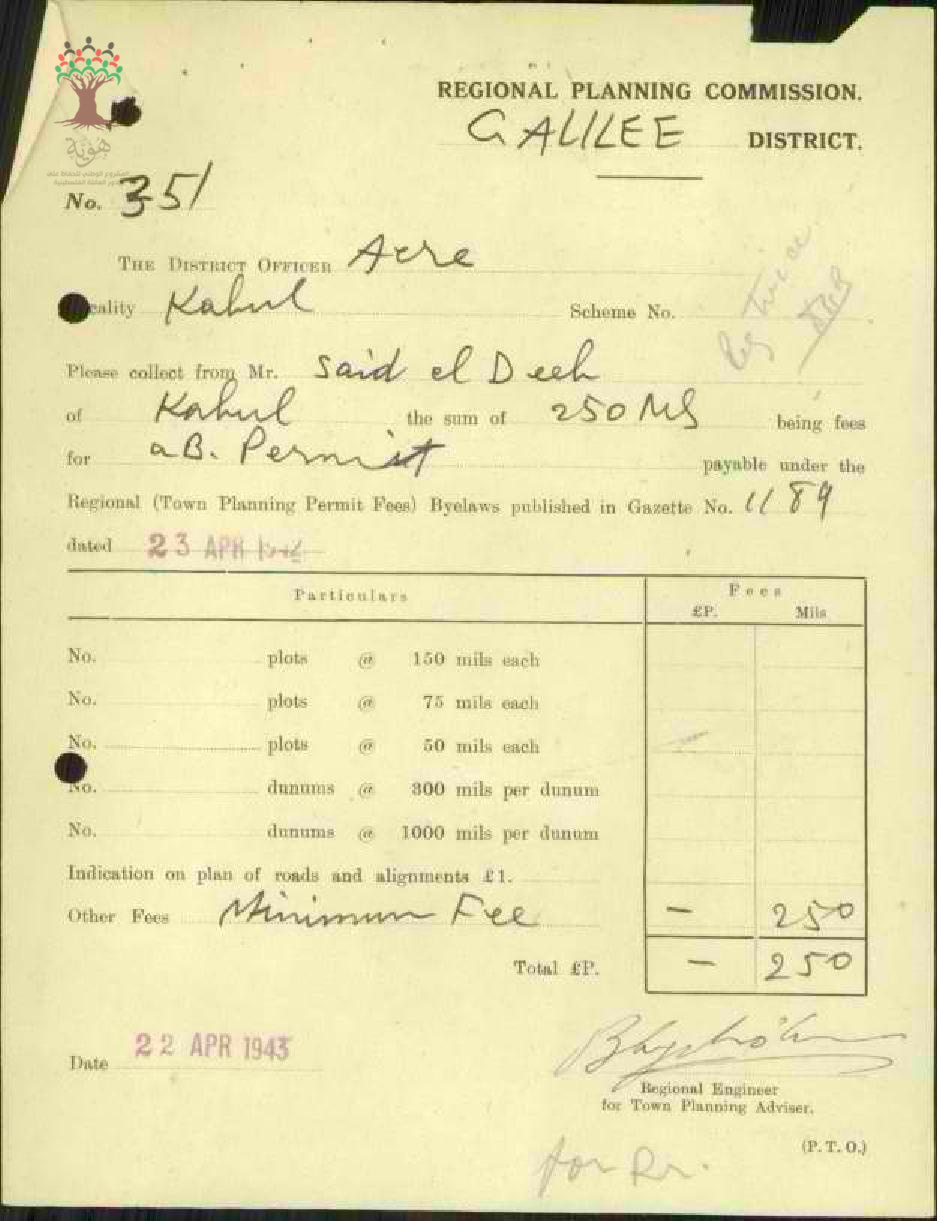 هوية
REGIONAL PLANNING COMMISSION.
GALILEE DISTRICT.
No. 351
THE DISTRICT OFFICER Acre
Locality Kabul Scheme No.
Please collect from Mr. Said el Deeb
of Kabul the sum of 250 Mls being fees
for a B. Permit payable under the
Regional (Town Planning Permit Fees) Byelaws published in Gazette No. 1189
dated 23 APR 1942
Particulars Fees
£P. Mils
No. plots @ 150 mils each
No. plots @ 75 mils each
No. plots @ 50 mils each
No. dunums @ 300 mils per dunum
No. dunums @ 1000 mils per dunum
Indication on plan of roads and alignments £1.
Other Fees Minimum Fee - 250
Total £P. - 250
Date 22 APR 1943
Regional Engineer
for Town Planning Adviser.
(P. T. O.)
for